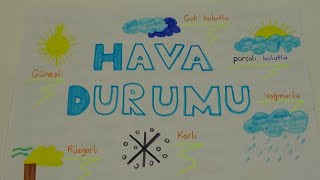 Çok bulutlu
Güneşli
HAVA
parçalı bulutlu
DURUMU
Yağmurlu
Rüzgarlı
Karlı